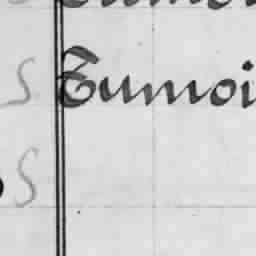 S Tumoi
S